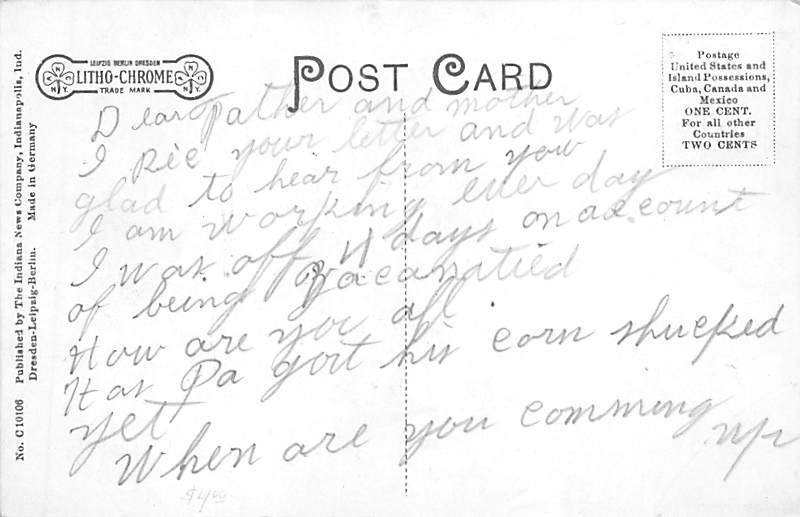 No. C10106 Published by The Indiana News Company, Indianapolis, Ind.
Dresden-Leipzig-Berlin. Made in Germany
LEIPZIG BERLIN DRESDEN
LITHO-CHROME
TRADE MARK
N.Y.
N.Y.
POST CARD
Postage
United States and
Island Possessions,
Cuba, Canada and
Mexico
ONE CENT.
For all other
Countries
TWO CENTS
Dear Father and mother
I Rec your letter and was
glad to hear from you
I am working ever day
I was off 4 days on account
of being
How are you all.
Has Pa gort his corn shucked
yet
When are you comming
up
$4.00